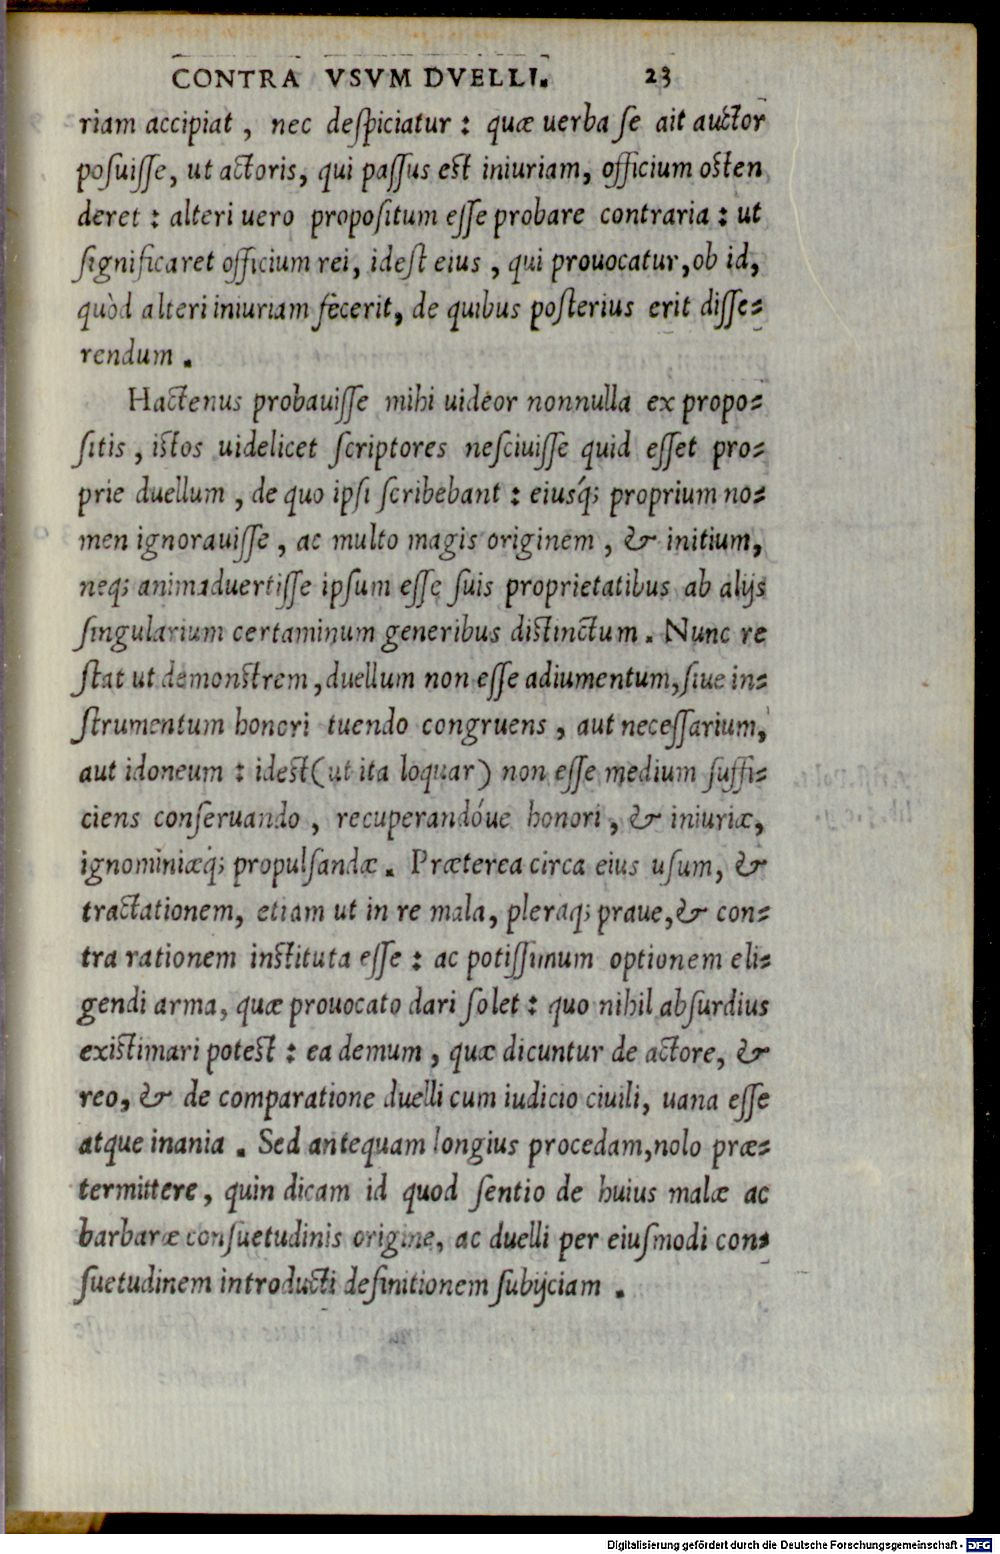 CONTRA VSVM DVELLI. 23
riam accipiat, nec deſpiciatur: quæ uerba ſe ait auctor
poſuiſſe, ut actoris, qui paſſus est iniuriam, officium osten
deret: alteri uero propoſitum eſſe probare contraria: ut
ſignificaret officium rei, ideſt eius, qui prouocatur, ob id,
quòd alteri iniuriam fecerit, de quibus poſterius erit diſſe=
rendum.
Hactenus probauiſſe mihi uideor nonnulla ex propo=
ſitis, istos uidelicet ſcriptores neſciuiſſe quid eſſet pro=
prie duellum, de quo ipſi ſcribebant: eiusq́; proprium no=
men ignorauiſſe, ac multo magis originem, & initium,
neq; animaduertiſſe ipſum eſſe ſuis proprietatibus ab alijs
ſingularium certaminum generibus distinctum. Nunc re
ſtat ut demonstrem, duellum non eſſe adiumentum, ſiue in=
ſtrumentum honori tuendo congruens, aut neceſſarium,
aut idoneum: idest (ut ita loquar) non eſſe medium ſuffi=
ciens conſeruando, recuperandóue honori, & iniuriæ,
ignominiæq́; propulſandæ. Præterea circa eius uſum, &
tractationem, etiam ut in re mala, pleraq; praue, & con=
tra rationem instituta eſſe: ac potiſſimum optionem eli=
gendi arma, quæ prouocato dari ſolet: quo nihil abſurdius
existimari potest: ea demum, quæ dicuntur de actore, &
reo, & de comparatione duelli cum iudicio ciuili, uana eſſe
atque inania. Sed antequam longius procedam, nolo præ=
termittere, quin dicam id quod ſentio de huius malæ ac
barbaræ conſuetudinis origine, ac duelli per eiuſmodi con=
ſuetudinem introducti definitionem ſubijciam.
Digitalisierung gefördert durch die Deutsche Forschungsgemeinschaft - DFG